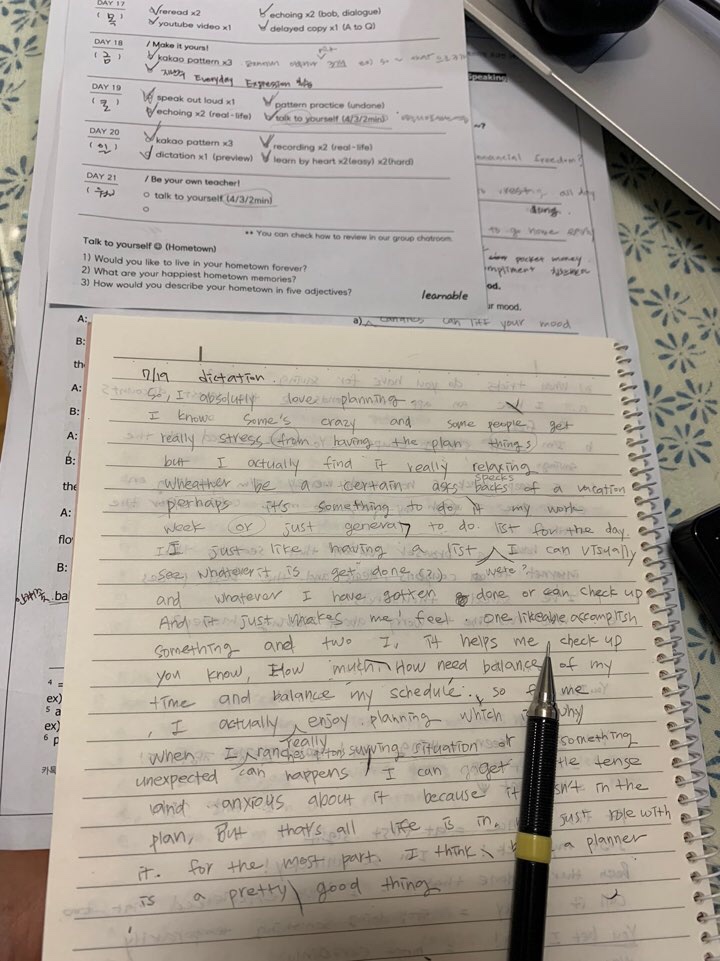 DAY 17
(목)
reread x2
echoing x2 (bob, dialogue)
youtube video x1
delayed copy x1 (A to Q)
DAY 18
(금)
/ Make it yours!
kakao pattern x3
Everyday Expression
DAY 19
(토)
speak out loud x1
pattern practice (undone)
echoing x2 (real-life)
talk to yourself (4/3/2min)
DAY 20
(일)
kakao pattern x3
recording x2 (real-life)
dictation x1 (preview)
learn by heart x2(easy) x2(hard)
DAY 21
/ Be your own teacher!
talk to yourself (4/3/2min)
** You can check how to review in our group chatroom.
Talk to yourself ☺ (Hometown)
1) Would you like to live in your hometown forever?
2) What are your happiest hometown memories?
3) How would you describe your hometown in five adjectives?
learnable
Speaking
financial freedom?
all day
to go home early
pocket money.
compliment
ur mood.
a) can lift your mood
A:
B:
the
A:
B:
A:
B:
the
A:
flo
B:
ba
4 =
ex)
5 a
ex)
6 p
카톡
7/19 dictation.
So, I absolutly love planning
I know some's crazy and some people get
really stress from having the plan things
but I actually find it really relaxing
specks
wheather be a certain asks backs of a vacation
perhaps it's something to do it my work
week or just general to do list for the day.
I just like having a list, I can visually
see whatever it is get done (?) were?
and whatever I have gotten done or can check up
And it just makes me feel. one likeable accomplish
something and two I, it helps me check up
you know, How much, How need balance of my
time and balance my schedule. so me
, I actually enjoy planning which why
really
when I situation or something
unexpected can happens, I can get tle tense
and anxious about it because it isn't in the
plan, But that's all life is in, just role with
it. for the most part. I think a planner
is a pretty good thing